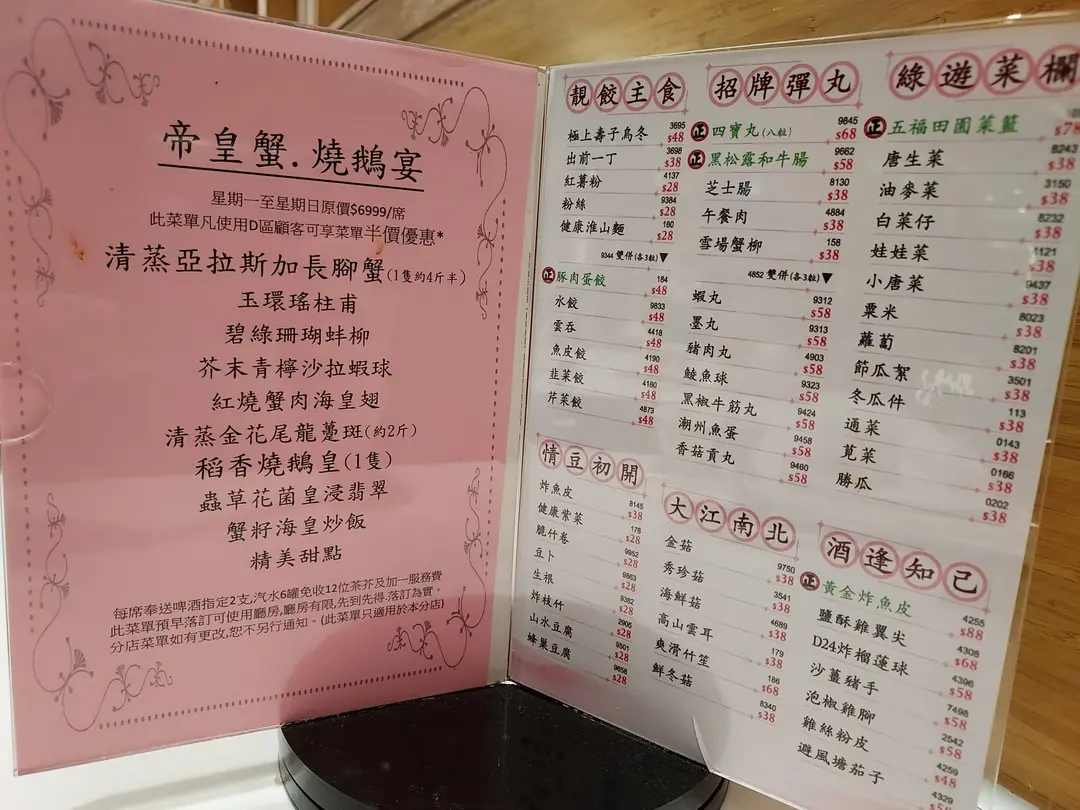 帝皇蟹.燒鵝宴
星期一至星期日原價$6999/席
此菜單凡使用D區顧客可享菜單半價優惠*
清蒸亞拉斯加長腳蟹(1隻約4斤半)
玉環瑤柱甫
碧綠珊瑚蚌柳
芥末青檸沙拉蝦球
紅燒蟹肉海皇翅
清蒸金花尾龍躉斑(約2斤)
稻香燒鵝皇(1隻)
蟲草花菌皇浸翡翠
蟹籽海皇炒飯
精美甜點
每席奉送啤酒指定2支,汽水6罐免收12位茶芥及加一服務費
此菜單預早落訂可使用廳房,廳房有限,先到先得.落訂為實。
分店菜單如有更改,恕不另行通知。(此菜單只適用於本分店)
靚餃主食
極上壽子烏冬 3695 $48
出前一丁 3698 $38
紅薯粉 4137 $28
粉絲 9384 $28
健康淮山麵 180 $28
9344 雙併(各3粒)▼
正 豚肉蛋餃 184 $48
水餃 9833 $48
雲吞 4418 $48
魚皮餃 4190 $48
韭菜餃 4160 $48
芹菜餃 4873 $48
招牌彈丸
正 四寶丸(八粒) 9845 $68
正 黑松露和牛腸 9662 $58
芝士腸 8130 $38
午餐肉 4884 $38
雪場蟹柳 158 $38
4852 雙併(各3粒)▼
蝦丸 9312 $58
墨丸 9313 $58
豬肉丸 4903 $58
鯪魚球 9323 $58
黑椒牛筋丸 9424 $58
潮州魚蛋 9458 $58
香菇貢丸 9460 $58
綠遊菜欄
正 五福田園菜籃 $78
唐生菜 8243 $38
油麥菜 3150 $38
白菜仔 8232 $38
娃娃菜 1121 $38
小唐菜 9437 $38
粟米 8023 $38
蘿蔔 8201 $38
節瓜絮 3501 $38
冬瓜件 113 $38
通菜 0143 $38
莧菜 0166 $38
勝瓜 0202 $38
情豆初開
炸魚皮 8145 $38
健康紫菜 178 $28
脆竹卷 9952 $28
豆卜 9863 $28
生根 9362 $28
炸枝竹 2905 $28
山水豆腐 9501 $28
蜂巢豆腐 9658 $28
大江南北
金菇 9750 $38
秀珍菇 3541 $38
海鮮菇 4689 $38
高山雲耳 179 $38
爽滑竹笙 186 $68
鮮冬菇 8340 $38
酒逢知己
正 黃金炸魚皮 4255 $88
鹽酥雞翼尖 4308 $68
D24炸榴蓮球 4396 $58
沙薑豬手 7498 $58
泡椒雞腳 2542 $58
雞絲粉皮 4259 $48
避風塘茄子 4329